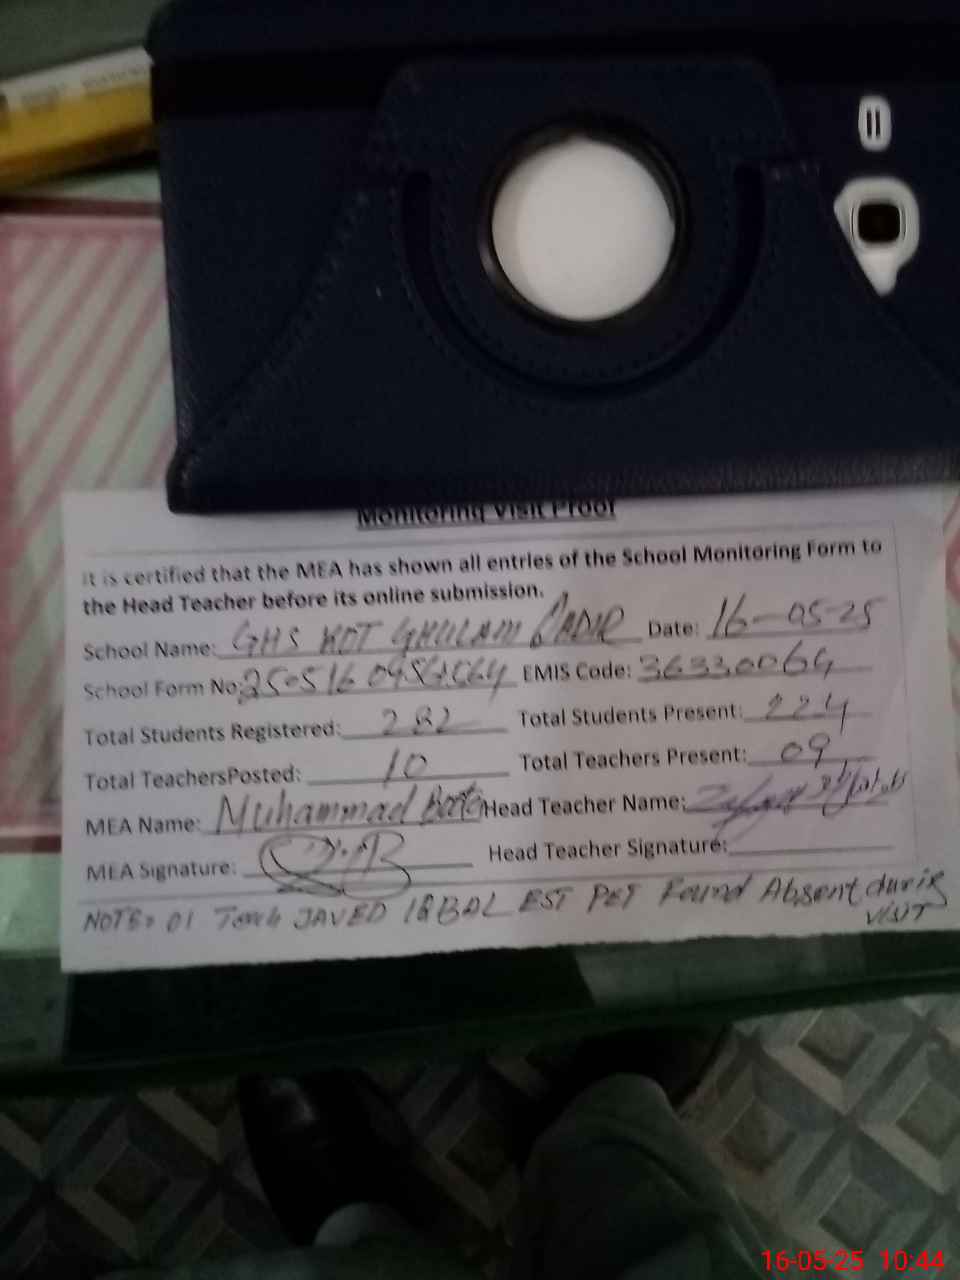 Monitoring Visit Proof
It is certified that the MEA has shown all entries of the School Monitoring Form to
the Head Teacher before its online submission.
School Name: GHS KOT GHULAM QADIR Date: 16-05-25
School Form No: EMIS Code: 36330064
Total Students Registered: 282 Total Students Present: 224
Total TeachersPosted: 10 Total Teachers Present: 09
MEA Name: Muhammad Boota Head Teacher Name:
MEA Signature: Head Teacher Signature:
NOTE: 01 JAVED IQBAL EST PET Found Absent during
visit
16-05-25 10:44